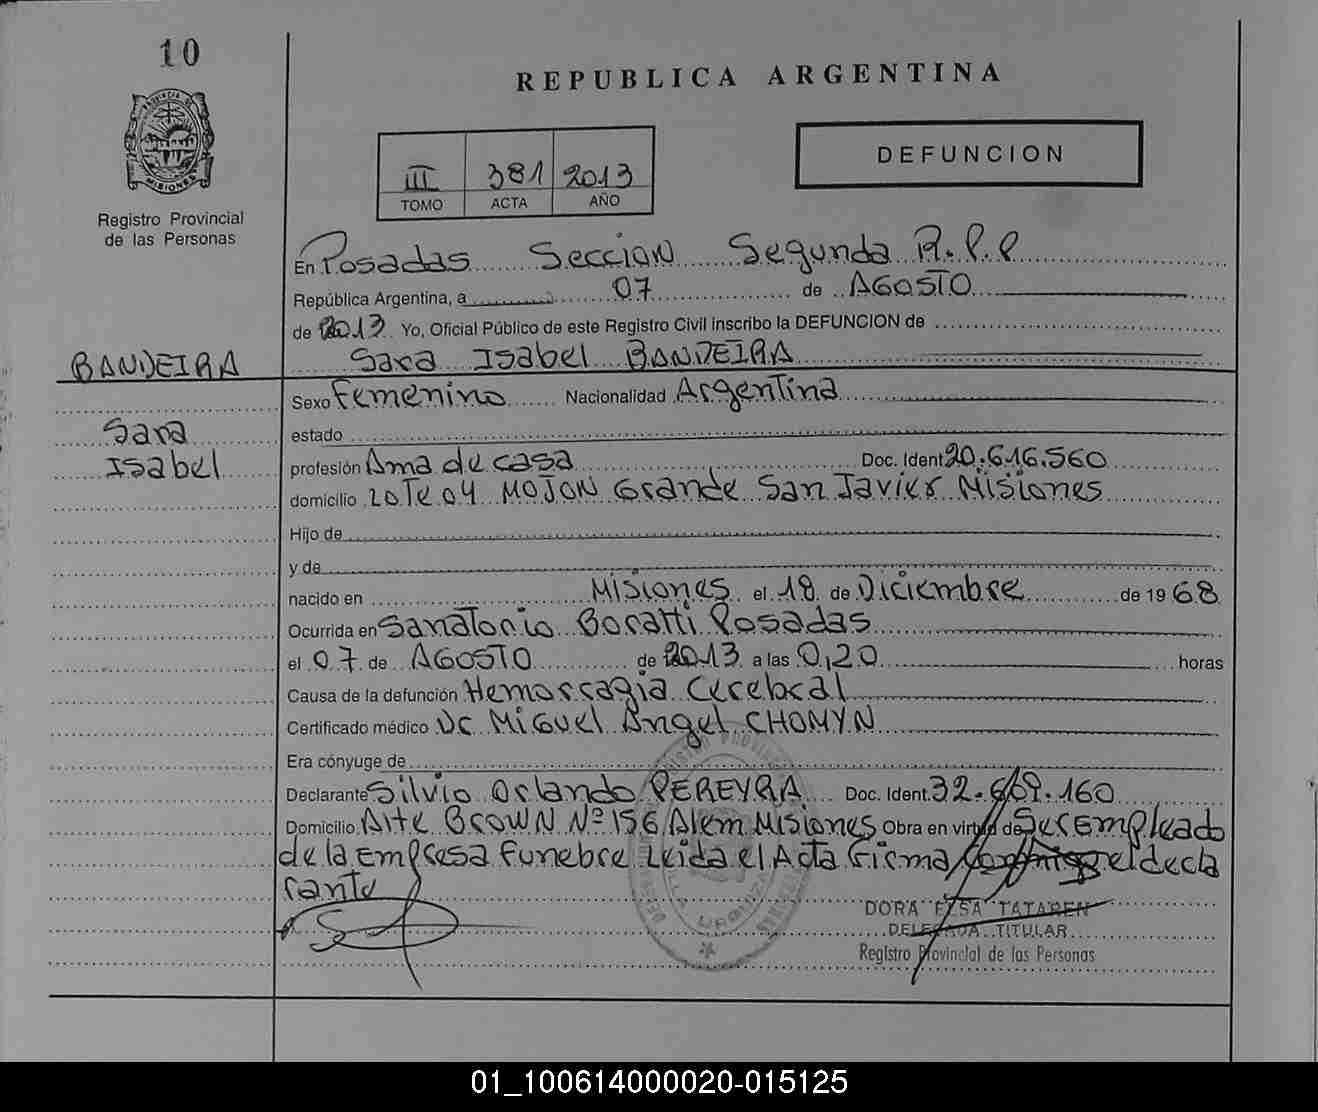 10
REPUBLICA ARGENTINA
PROVINCIA DE
MISIONES
Registro Provincial
de las Personas
III 381 2013
TOMO ACTA AÑO
DEFUNCION
En Posadas Seccion Segunda R.P.P
República Argentina, a 07 de AGOSTO
de 2013 Yo, Oficial Público de este Registro Civil inscribo la DEFUNCION de
BANDEIRA Sara Isabel BANDEIRA
Sexo Femenino Nacionalidad Argentina
Sara estado
Isabel profesión Ama de casa Doc. Ident 20.616.560
domicilio LoTe 04 MOJON Grande San Javier Misiones
Hijo de
y de
nacido en Misiones el 18 de Diciembre de 1968
Ocurrida en SanaTorio Boratti Posadas
el 07 de AGOSTO de 2013 a las 0,20 horas
Causa de la defunción Hemorragia Cerebral
Certificado médico Dr Miguel Angel CHOMYN
Era cónyuge de
Declarante Silvio Orlando PEREYRA Doc. Ident. 32.609.160
Domicilio Alte Brown Nº 156 Alem Misiones Obra en virtud de Ser Empleado
de la Empresa Funebre Leida el Acta Firma el decla
rante
DORA ELSA TATAREN
DELEGADA TITULAR
Registro Provincial de las Personas
01_100614000020-015125